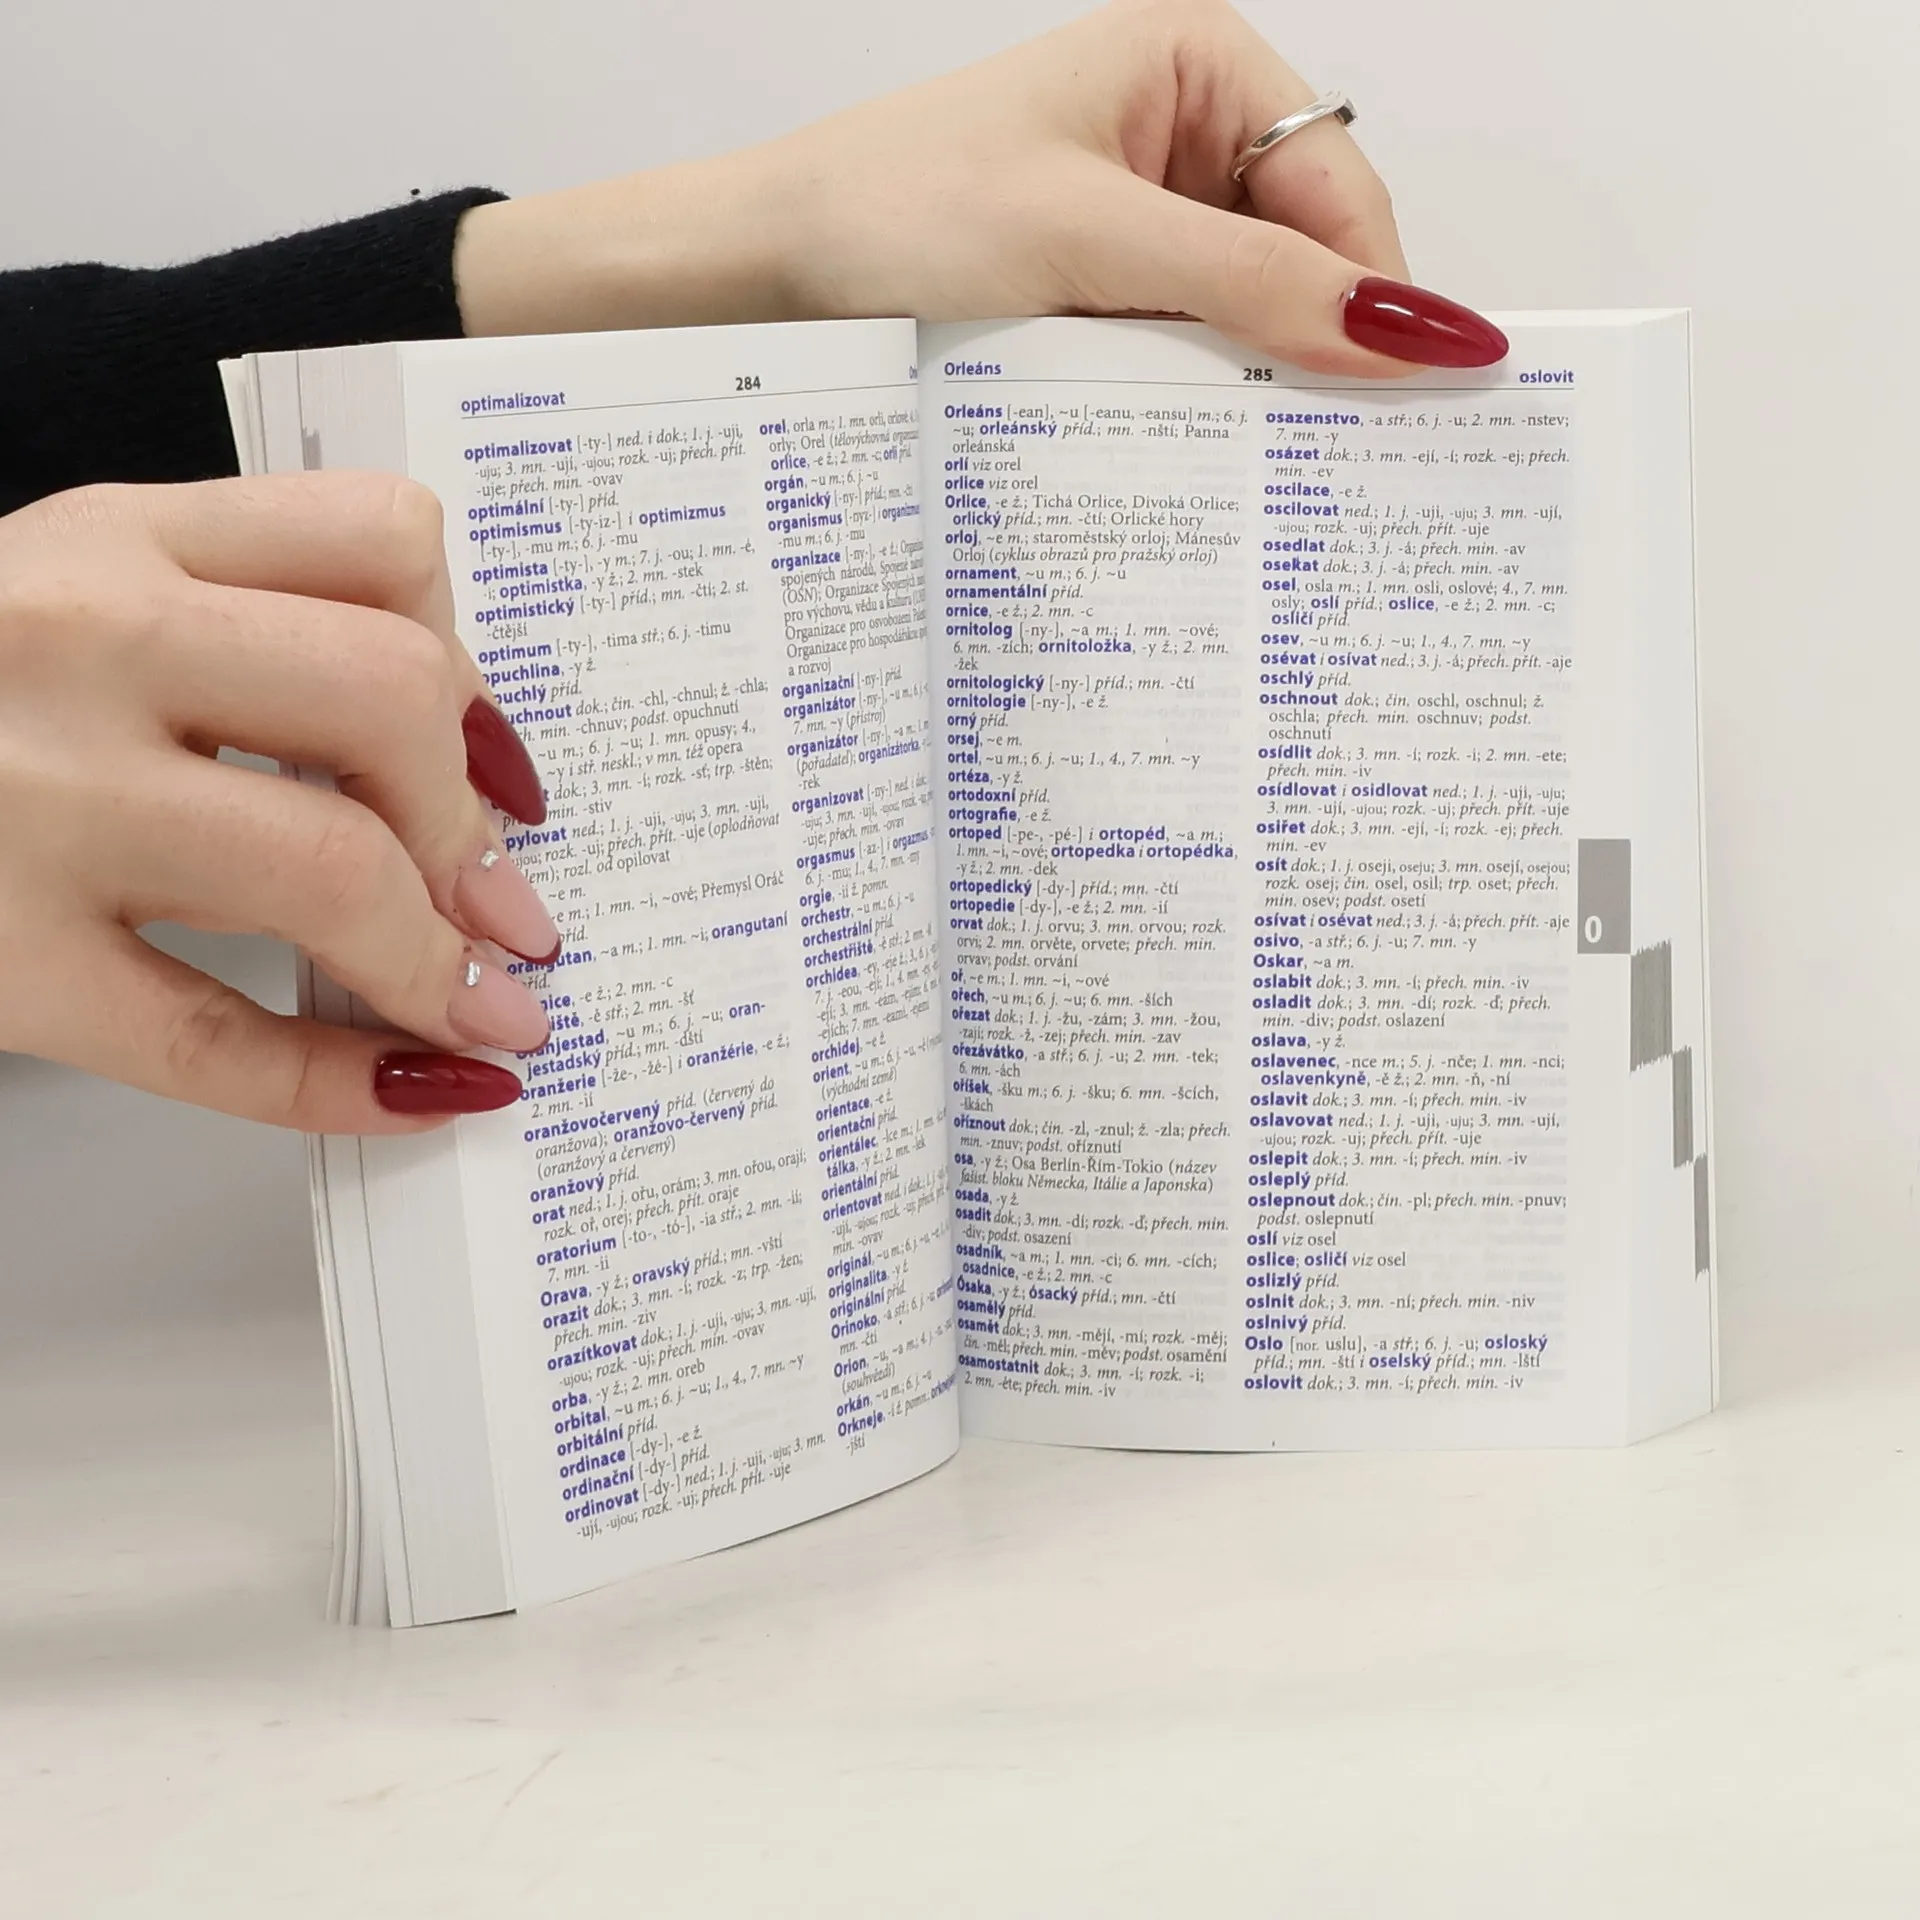 optimalizovat
284
optimalizovat [-ty-] ned. i dok.; 1. j. -uji,
-uju; 3. mn. -ují, -ujou; rozk. -uj; přech. přít.
-uje; přech. min. -ovav
optimální [-ty-] příd.
optimismus [-ty-iz-] i optimizmus
[-ty-], -mu m.; 6. j. -mu
optimista [-ty-], -y m.; 7. j. -ou; 1. mn. -é,
-i; optimistka, -y ž.; 2. mn. -stek
optimistický [-ty-] příd.; mn. -čtí; 2. st.
-čtější
optimum [-ty-], -tima stř.; 6. j. -timu
opuchlina, -y ž.
příd.
dok.; čin. -chl, -chnul; ž. -chla;
min. -chnuv; podst. opuchnutí
~u m.; 6. j. ~u; 1. mn. opusy; 4.,
~y i stř. neskl.; v mn. též opera
dok.; 3. mn. -í; rozk. -sť; trp. -štěn;
min. -stiv
opylovat ned.; 1. j. -uji, -uju; 3. mn. -ují,
-ujou; rozk. -uj; přech. přít. -uje (oplodňovat
rozl. od opilovat
~e m.
~e m.; 1. mn. ~i, ~ové; Přemysl Oráč
příd.
orangutan, ~a m.; 1. mn. ~i; orangutaní
příd.
-e ž.; 2. mn. -c
-ě stř.; 2. mn. -šť
Oranjestad, ~u m.; 6. j. ~u; oran-
jestadský příd.; mn. -dští
oranžerie [-že-, -žé-] i oranžérie, -e ž.;
2. mn. -ií
oranžovočervený příd. (červený do
oranžova); oranžovo-červený příd.
(oranžový a červený)
oranžový příd.
orat ned.; 1. j. ořu, orám; 3. mn. ořou, orají;
rozk. oř, orej; přech. přít. oraje
oratorium [-to-, -tó-], -ia stř.; 2. mn. -ií;
7. mn. -ii
Orava, -y ž.; oravský příd.; mn. -vští
orazit dok.; 3. mn. -í; rozk. -z; trp. -žen;
přech. min. -ziv
orazítkovat dok.; 1. j. -uji, -uju; 3. mn. -ují,
-ujou; rozk. -uj; přech. min. -ovav
orba, -y ž.; 2. mn. oreb
orbital, ~u m.; 6. j. ~u; 1., 4., 7. mn. ~y
orbitální příd.
ordinace [-dy-], -e ž.
ordinační [-dy-] příd.
ordinovat [-dy-] ned.; 1. j. -uji, -uju; 3. mn.
-ují, -ujou; rozk. -uj; přech. přít. -uje
orel, orla m.; 1. mn. orli, orlové; 4.
orly; Orel (tělovýchovná
orlice, -e ž.; 2. mn. -c; orlí příd.
orgán, ~u m.; 6. j. ~u
organický [-ny-] příd.; mn. -čtí
organismus [-nyz-] i
-mu m.; 6. j. -mu
organizace [-ny-], -e ž.;
spojených národů, Spojené
(OSN); Organizace Spojených
pro výchovu, vědu a kulturu
Organizace pro osvobození
Organizace pro hospodářskou
a rozvoj
organizační [-ny-] příd.
organizátor [-ny-], ~u m.; 6. j.
7. mn. ~y (přístroj)
organizátor [-ny-], ~a m.; 1.
(pořadatel); organizátorka,
-rek
organizovat [-ny-] ned. i dok.
-uju; 3. mn. -ují, -ujou; rozk.
-uje; přech. min. -ovav
orgasmus [-az-] i orgazmus,
6. j. -mu; 1., 4., 7. mn. -my
orgie, -ií ž. pomn.
orchestr, ~u m.; 6. j. ~u
orchestrální příd.
orchestřiště, -ě stř.; 2. mn.
orchidea, -ey, -eje ž.; 3., 6. j.
7. j. -eou, -ejí; 1., 4. mn.
-ejí; 3. mn. -eám, -ejím; 6.
-ejích; 7. mn. -eami, -ejemi
orchidej, ~e ž.
orient, ~u m.; 6. j. ~u,
(východní země)
orientace, -e ž.
orientační příd.
orientálec, -lce m.; 1. mn.
tálka, -y ž.; 2. mn. -lek
orientální příd.
orientovat ned. i dok.; 1. j.
-ují, -ujou; rozk. -uj; přech.
min. -ovav
originál, ~u m.; 6. j. ~u
originalita, -y ž.
originální příd.
Orinoko, -a stř.; 6. j. -u;
mn. -čtí
Orion, ~u, ~a m.; 4. j.
(souhvězdí)
orkán, ~u m.; 6. j. ~u
Orkneje, -í ž. pomn.;
-jští
Orleáns
285
oslovit
Orleáns [-ean], ~u [-eanu, -eansu] m.; 6. j.
~u; orleánský příd.; mn. -nští; Panna
orleánská
orlí viz orel
orlice viz orel
Orlice, -e ž.; Tichá Orlice, Divoká Orlice;
orlický příd.; mn. -čtí; Orlické hory
orloj, ~e m.; staroměstský orloj; Mánesův
Orloj (cyklus obrazů pro pražský orloj)
ornament, ~u m.; 6. j. ~u
ornamentální příd.
ornice, -e ž.; 2. mn. -c
ornitolog [-ny-], ~a m.; 1. mn. ~ové;
6. mn. -zích; ornitoložka, -y ž.; 2. mn.
-žek
ornitologický [-ny-] příd.; mn. -čtí
ornitologie [-ny-], -e ž.
orný příd.
orsej, ~e m.
ortel, ~u m.; 6. j. ~u; 1., 4., 7. mn. ~y
ortéza, -y ž.
ortodoxní příd.
ortografie, -e ž.
ortoped [-pe-, -pé-] i ortopéd, ~a m.;
1. mn. ~i, ~ové; ortopedka i ortopédka,
-y ž.; 2. mn. -dek
ortopedický [-dy-] příd.; mn. -čtí
ortopedie [-dy-], -e ž.; 2. mn. -ií
orvat dok.; 1. j. orvu; 3. mn. orvou; rozk.
orvi; 2. mn. orvěte, orvete; přech. min.
orvav; podst. orvání
oř, ~e m.; 1. mn. ~i, ~ové
ořech, ~u m.; 6. j. ~u; 6. mn. -ších
ořezat dok.; 1. j. -žu, -zám; 3. mn. -žou,
-zají; rozk. -ž, -zej; přech. min. -zav
ořezávátko, -a stř.; 6. j. -u; 2. mn. -tek;
6. mn. -ách
oříšek, -šku m.; 6. j. -šku; 6. mn. -šcích,
-škách
oříznout dok.; čin. -zl, -znul; ž. -zla; přech.
min. -znuv; podst. oříznutí
osa, -y ž.; Osa Berlín-Řím-Tokio (název
fašist. bloku Německa, Itálie a Japonska)
osada, -y ž.
osadit dok.; 3. mn. -dí; rozk. -ď; přech. min.
-div; podst. osazení
osadník, ~a m.; 1. mn. -ci; 6. mn. -cích;
osadnice, -e ž.; 2. mn. -c
Ósaka, -y ž.; ósacký příd.; mn. -čtí
osamělý příd.
osamět dok.; 3. mn. -mějí, -mí; rozk. -měj;
čin. -měl; přech. min. -měv; podst. osamění
osamostatnit dok.; 3. mn. -í; rozk. -i;
2. mn. -ěte; přech. min. -iv
osazenstvo, -a stř.; 6. j. -u; 2. mn. -nstev;
7. mn. -y
osázet dok.; 3. mn. -ejí, -í; rozk. -ej; přech.
min. -ev
oscilace, -e ž.
oscilovat ned.; 1. j. -uji, -uju; 3. mn. -ují,
-ujou; rozk. -uj; přech. přít. -uje
osedlat dok.; 3. j. -á; přech. min. -av
osekat dok.; 3. j. -á; přech. min. -av
osel, osla m.; 1. mn. osli, oslové; 4., 7. mn.
osly; oslí příd.; oslice, -e ž.; 2. mn. -c;
osličí příd.
osev, ~u m.; 6. j. ~u; 1., 4., 7. mn. ~y
osévat i osívat ned.; 3. j. -á; přech. přít. -aje
oschlý příd.
oschnout dok.; čin. oschl, oschnul; ž.
oschla; přech. min. oschnuv; podst.
oschnutí
osídlit dok.; 3. mn. -í; rozk. -i; 2. mn. -ete;
přech. min. -iv
osídlovat i osidlovat ned.; 1. j. -uji, -uju;
3. mn. -ují, -ujou; rozk. -uj; přech. přít. -uje
osiřet dok.; 3. mn. -ejí, -í; rozk. -ej; přech.
min. -ev
osít dok.; 1. j. oseji, oseju; 3. mn. osejí, osejou;
rozk. osej; čin. osel, osil; trp. oset; přech.
min. osev; podst. osetí
osívat i osévat ned.; 3. j. -á; přech. přít. -aje
osivo, -a stř.; 6. j. -u; 7. mn. -y
Oskar, ~a m.
oslabit dok.; 3. mn. -í; přech. min. -iv
osladit dok.; 3. mn. -dí; rozk. -ď; přech.
min. -div; podst. oslazení
oslava, -y ž.
oslavenec, -nce m.; 5. j. -nče; 1. mn. -nci;
oslavenkyně, -ě ž.; 2. mn. -ň, -ní
oslavit dok.; 3. mn. -í; přech. min. -iv
oslavovat ned.; 1. j. -uji, -uju; 3. mn. -ují,
-ujou; rozk. -uj; přech. přít. -uje
oslepit dok.; 3. mn. -í; přech. min. -iv
osleplý příd.
oslepnout dok.; čin. -pl; přech. min. -pnuv;
podst. oslepnutí
oslí viz osel
oslice; osličí viz osel
oslizlý příd.
oslnit dok.; 3. mn. -ní; přech. min. -niv
oslnivý příd.
Oslo [nor. uslu], -a stř.; 6. j. -u; osloský
příd.; mn. -ští i oselský příd.; mn. -lští
oslovit dok.; 3. mn. -í; přech. min. -iv
O